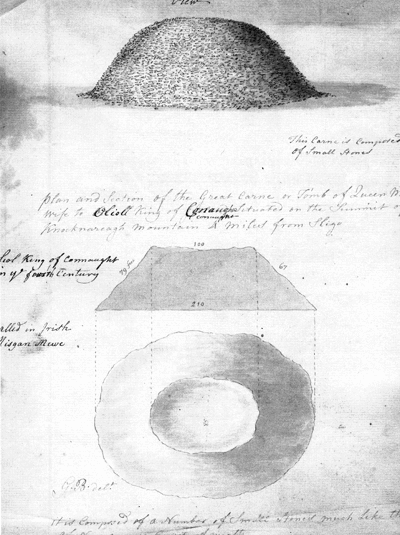 View
This Carne is Composed
of Small Stones
Plan and Section of the Great Carne or Tomb of Queen M
Wife to Olioll King of Connaught Situated on the Summit o
Knocknareagh Mountain 2 Miles from Sligo
liol King of Connaught
in ye fourth Century
alled in Irish
Misgan Mewe
100
79 feet
67
210
It is Composed of a Number of Small Stones much like th